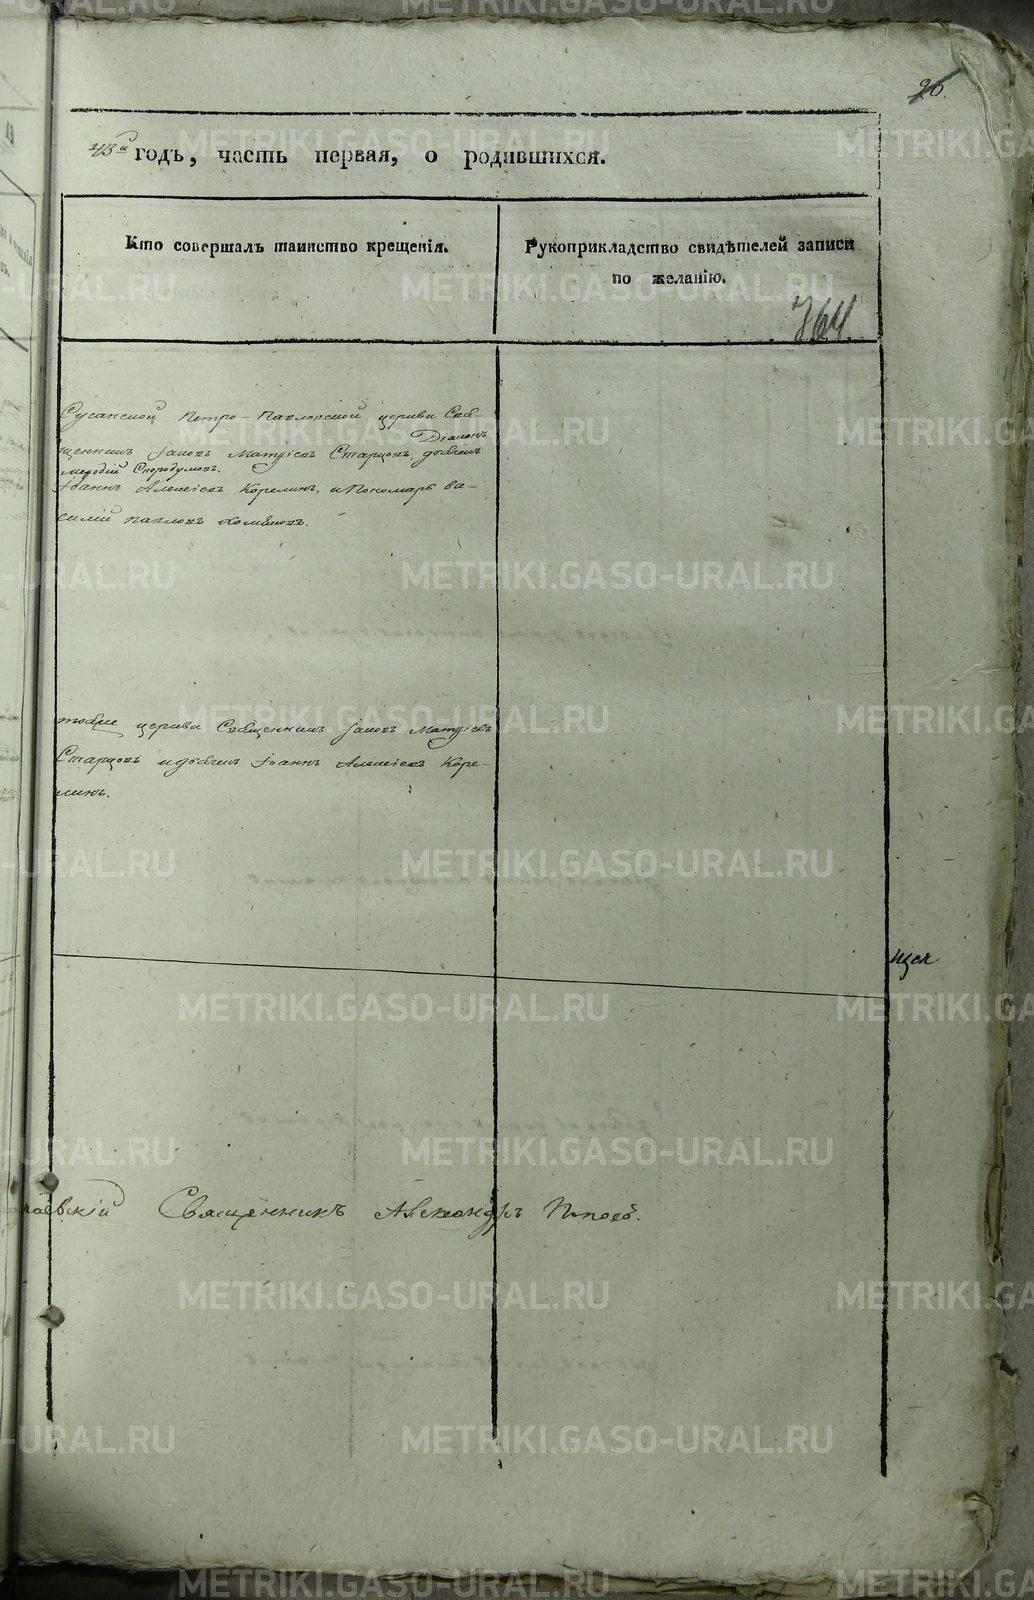 26.
43й годъ, часть первая, о родившихся.
Кто совершалъ таинство крещенія.
Рукоприкладство свидѣтелей записи
по желанію.
764.
Сусанской Петро-Павловской церкви Свя-
щенникъ Іаковъ Матѳіевъ Старцовъ, Діаконъ
Меѳодій Скородумовъ, дьячекъ
Іоаннъ Алексіевъ Корелинъ, и Пономарь Ва-
силій Павловъ Хомяковъ.
тойже церкви Священникъ Іаковъ Матѳіевъ
Старцовъ и дьячекъ Іоаннъ Алексіевъ Коре-
линъ.
Священникъ Александръ Поповъ.
METRIKI.GASO-URAL.RU